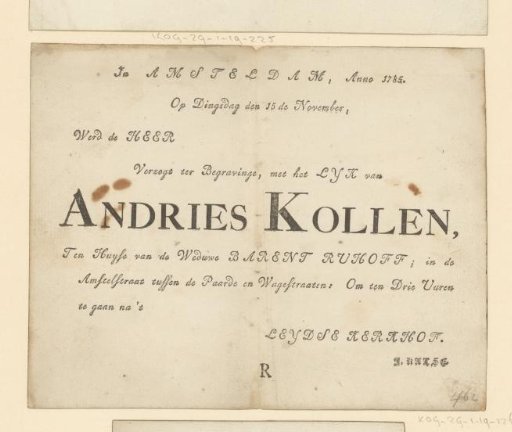 KOG-ZG-1-19-225
In AMSTELDAM, Anno 1785.
Op Dingsdag den 15de November,
Werd de HEER
Verzogt ter Begravinge, met het LYK van
ANDRIES KOLLEN,
Ten Huyse van de Weduwe BARENT RUHOFF; in de
Amstelstraat tussen de Paarde en Wagestraaten: Om ten Drie Uuren
te gaan na's
LEYDSE KERKHOF.
R
462
KOG-ZG-1-19-226